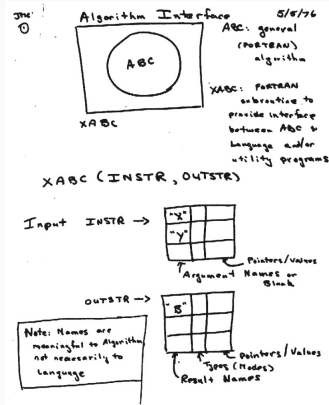 JMC
Algorithm Interface 5/5/76
①
ABC: general
(FORTRAN)
algorithm
ABC
XABC: FORTRAN
subroutine to
provide interface
between ABC &
Language and/or
utility programs
XABC
XABC (INSTR, OUTSTR)
Input INSTR →
"X"
"Y"
Pointers/Values
Argument Names or
Blank
OUTSTR →
"B"
Note: Names are
meaningful to Algorithm
not necessarily to
Language
Pointers/Values
Types (Modes)
Result Names